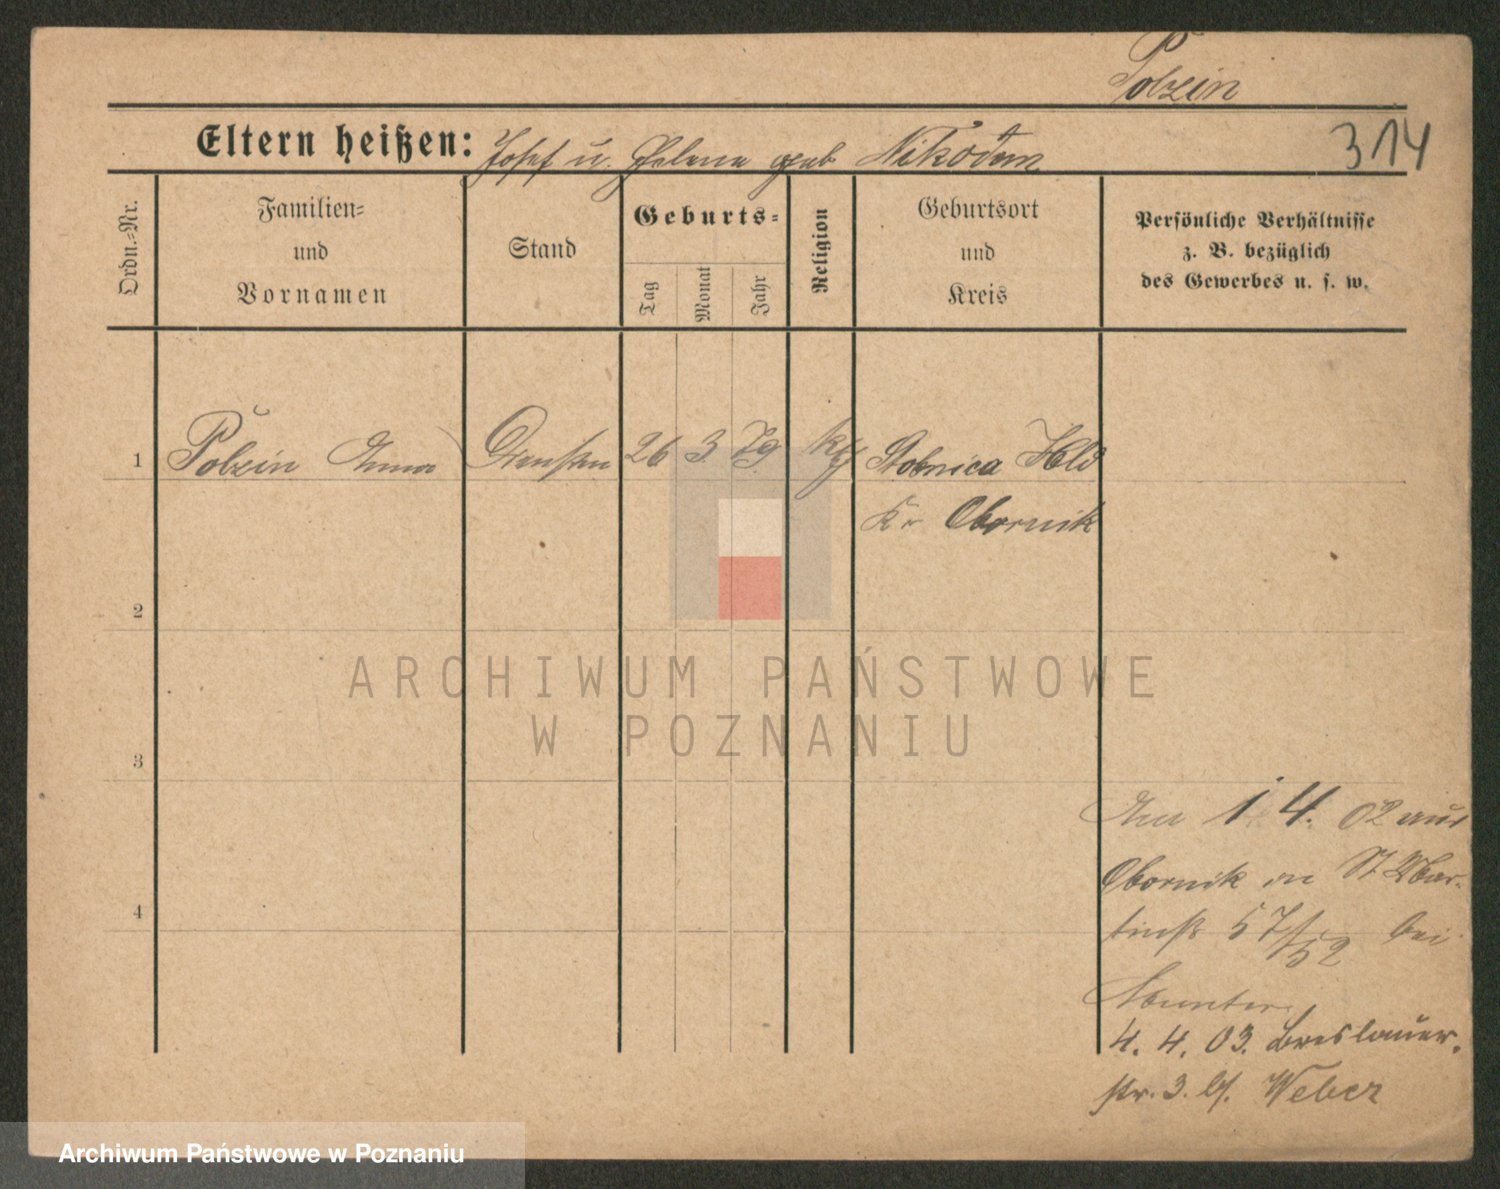 Polzin
Eltern heißen: Josef u. Helene geb Nikodem
314
Ordn.-Nr.
Familien-
und
Vornamen
Stand
Geburts-
Tag
Monat
Jahr
Religion
Geburtsort
und
Kreis
Persönliche Verhältnisse
z. B. bezüglich
des Gewerbes u. s. w.
1 Polzin Anna 26 3. 79. kth Stobnica Hld
Kr Obornik
2
ARCHIWUM PAŃSTWOWE
W POZNANIU
3
Am 1 4. 02 aus
Obornik in St Mar-
tinstr 57/52 bei
4
4. 4. 03. Breslauer-
str. 3. bei Weber
Archiwum Państwowe w Poznaniu